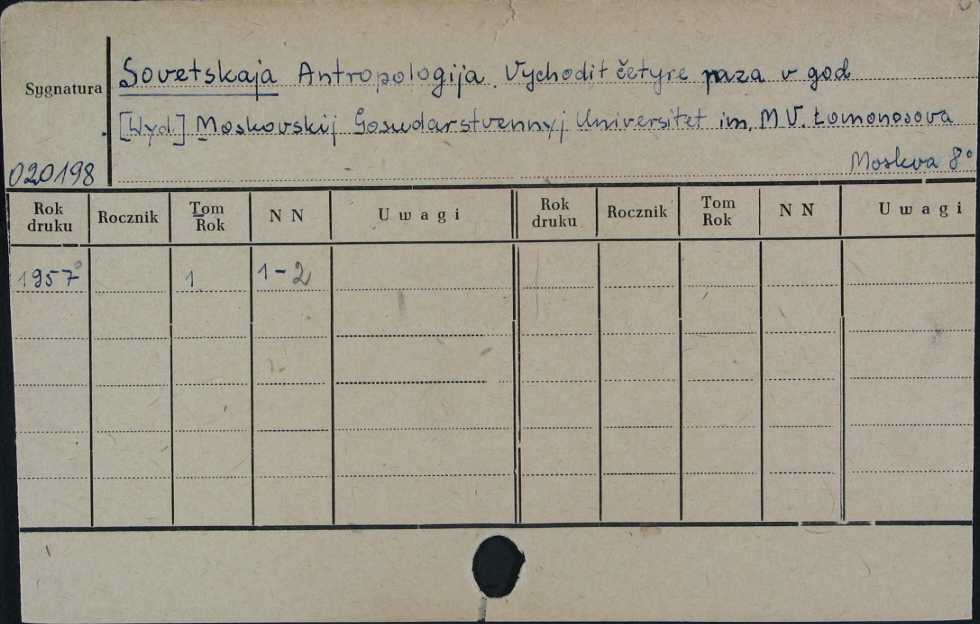 Sygnatura
Sovetskaja Antropologija. Vychodit četyre raza v god
[Wyd.] Moskovskij Gosudarstvennyj Universitet im. M.V. Łomonosova
020198
Moskva 8°
Rok druku Rocznik Tom Rok N N Uwagi Rok druku Rocznik Tom Rok N N Uwagi
1957 1 1-2